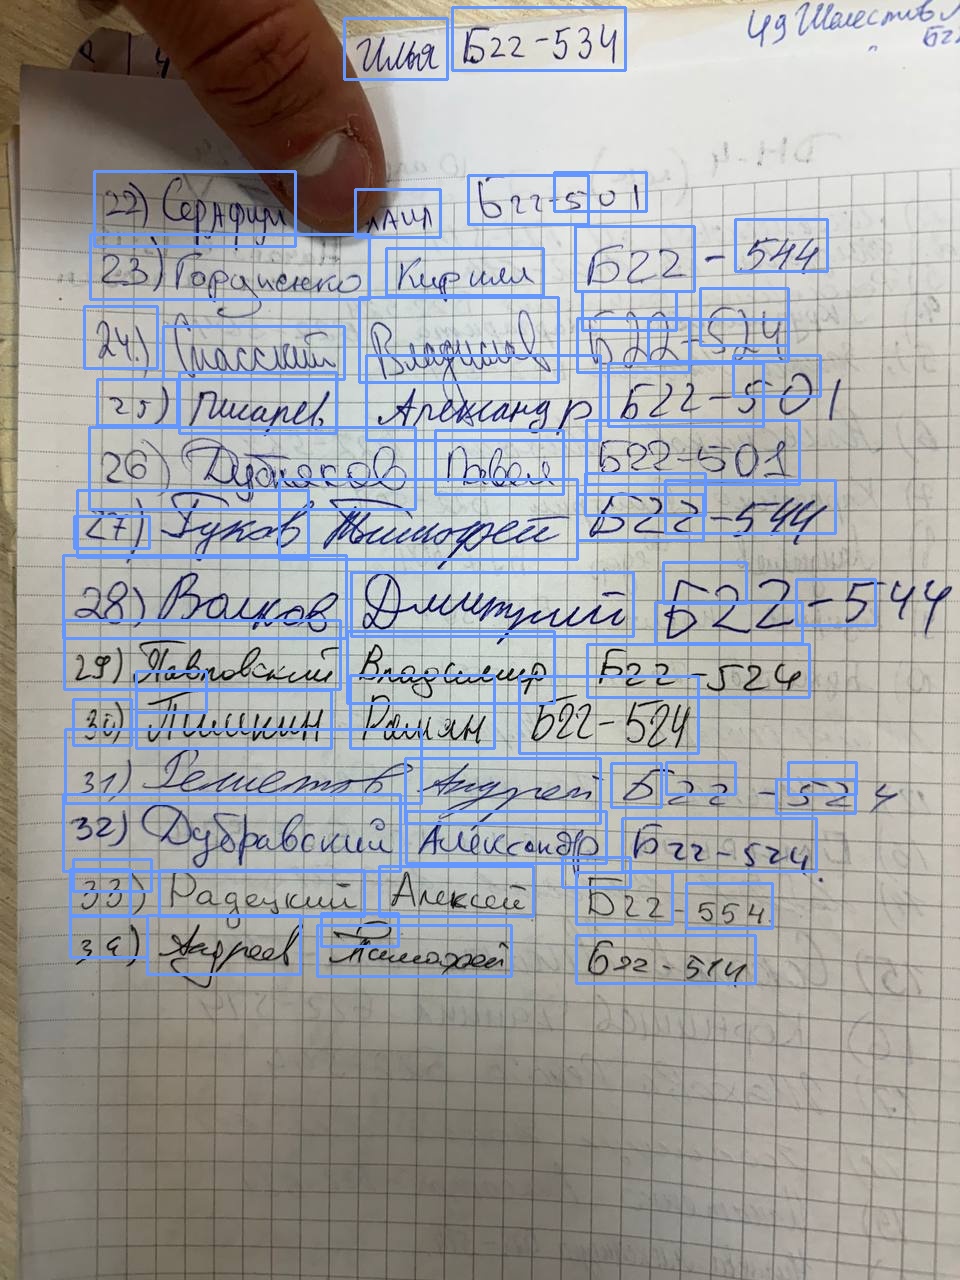 49 Шелестов
Илья Б22-534
22) Серафим Б22-501
23) Гордиенко Кирилл Б22-544
24.) Спасский Владислав Б22-524
25) Писарев Александр Б22-501
26) Дубняков Павел Б22-501
27) Гуков Тимофей Б22-544
28) Волков Дмитрий Б22-544
29) Павловский Владимир Б22-524
30) Пишкин Роман Б22-524
31) Решетов Андрей Б22-524
32) Дубравский Александр Б22-524.
33) Радецкий Алексей Б22-554.
34) Андреев Тимофей Б22-514